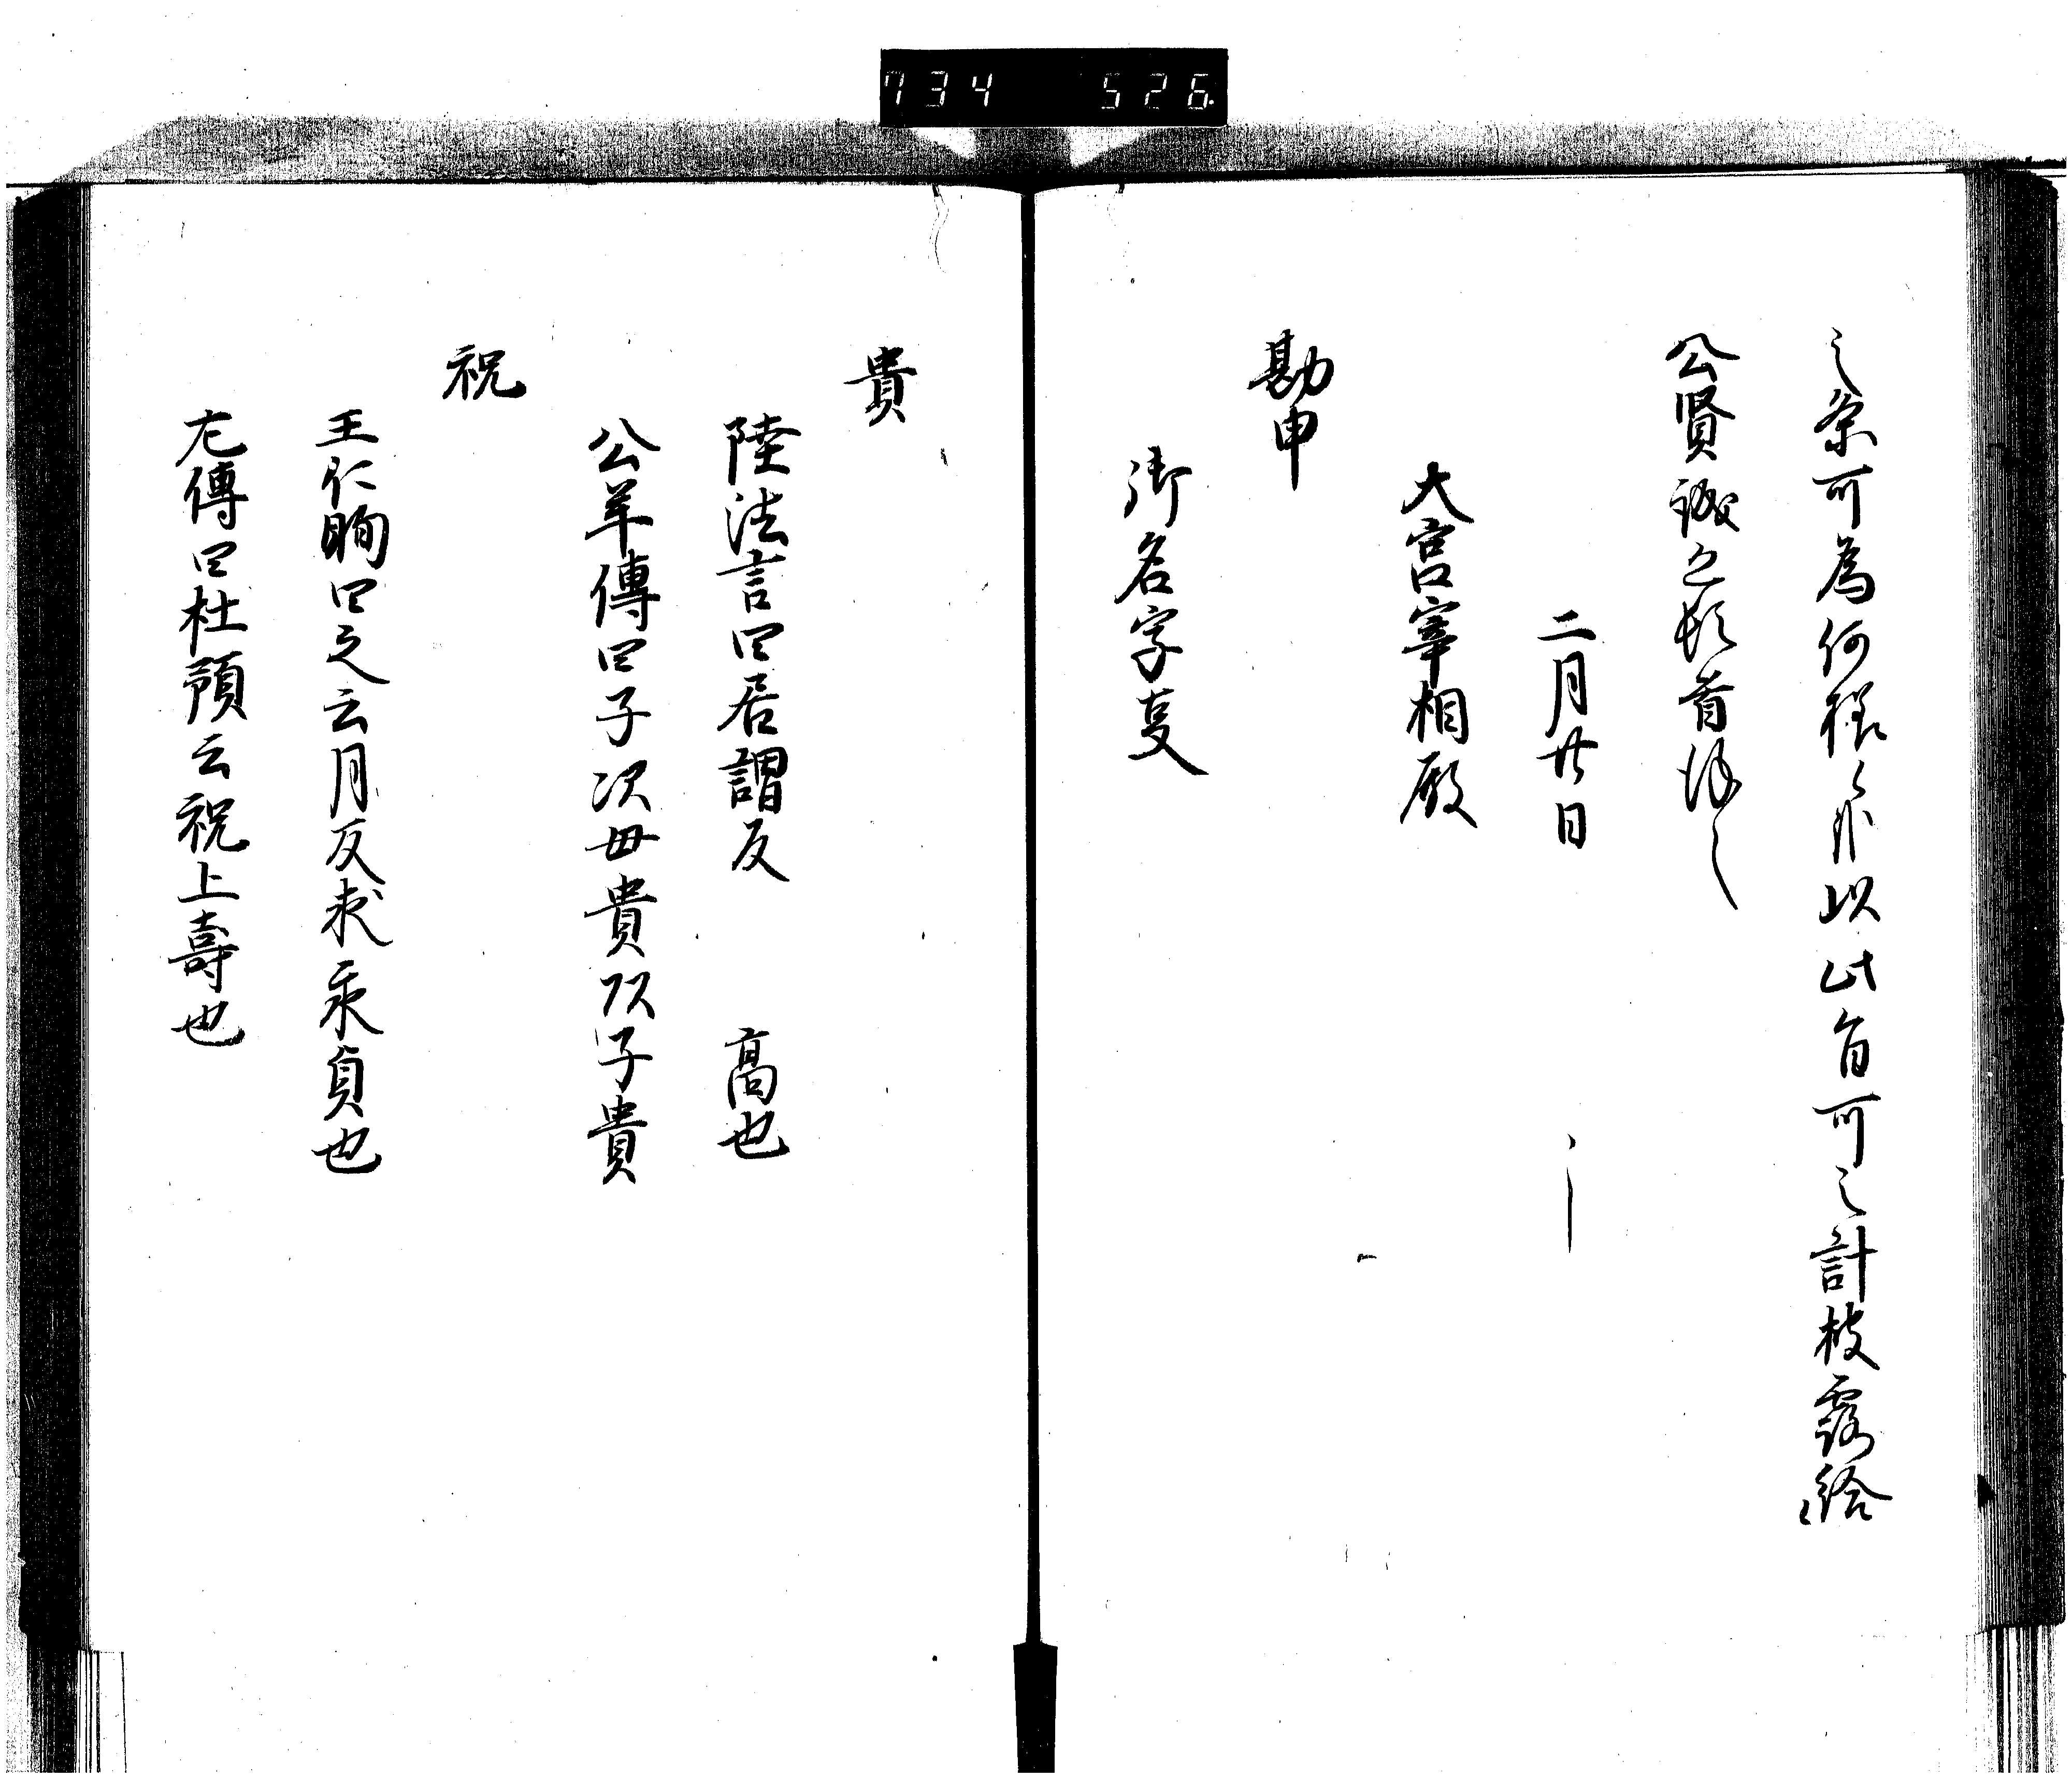 734 526
之条可為何様候哉以此旨可令計披露給
公賢誠恐頓首謹言
二月廿日
大宮宰相殿
勘申
御名字叓
貴
陸法言曰居謂反 高也
公羊傳曰子以母貴以子貴
祝
王仁昫曰之云月反求永貞也
左傳曰杜預云祝上壽也